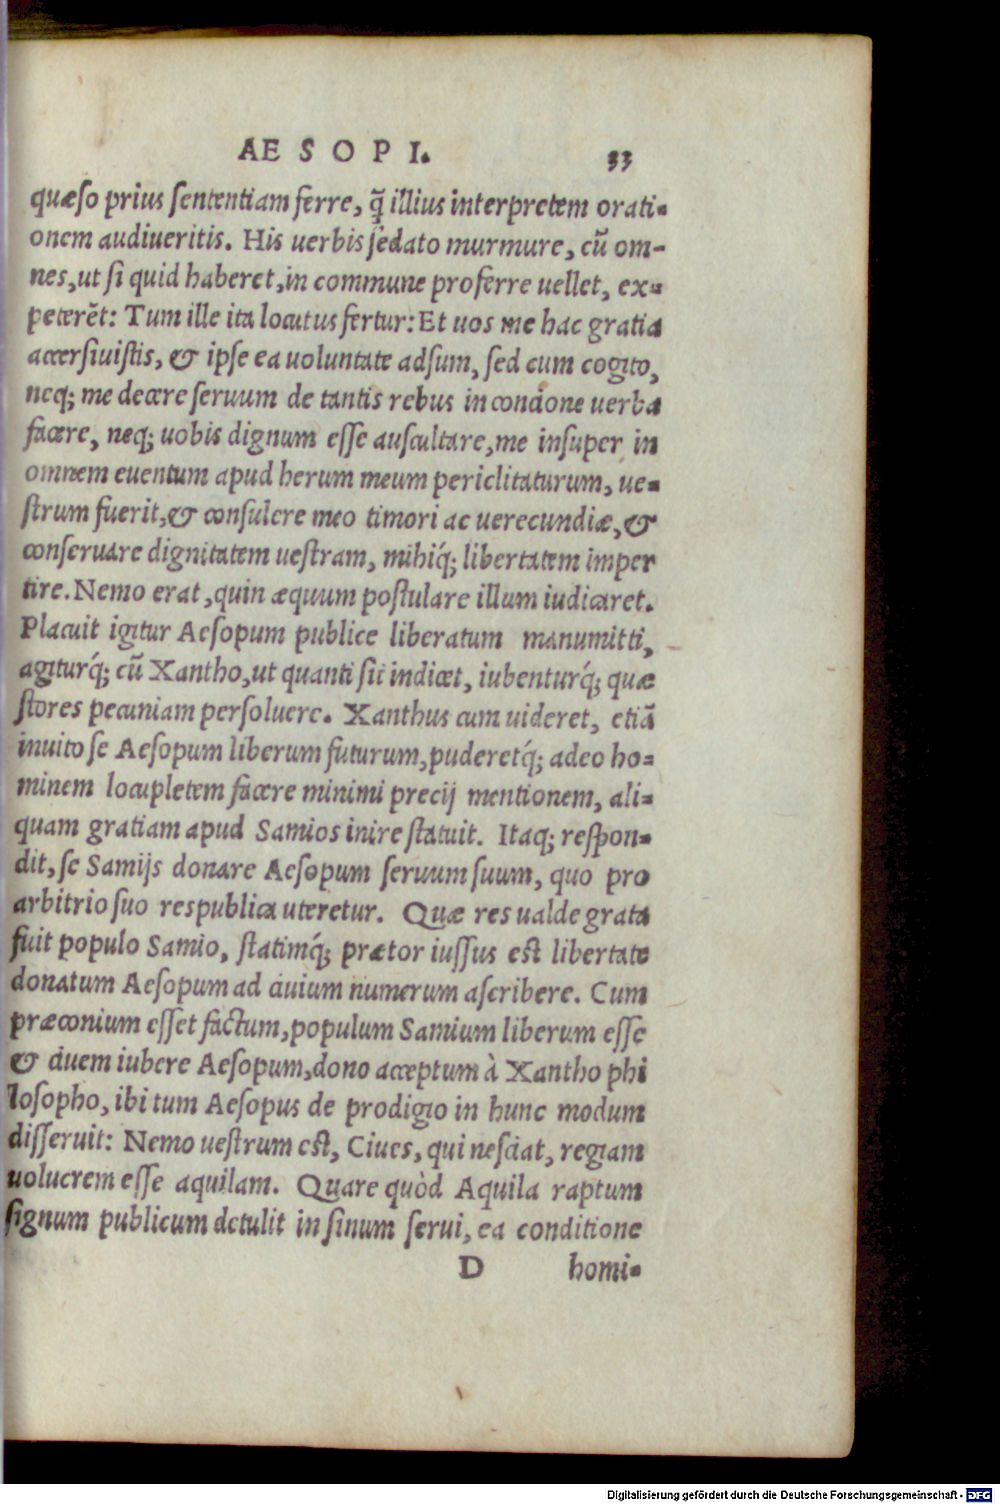 AESOPI. 33
quæso prius sententiam ferre, q̃ illius interpretem orati-
onem audiueritis. His uerbis sedato murmure, cũ om-
nes, ut si quid haberet, in commune proferre uellet, ex-
peterẽt: Tum ille ita locutus fertur: Et uos me hac gratia
accersiuistis, & ipse ea uoluntate adsum, sed cum cogito,
neq; me decere seruum de tantis rebus in concione uerba
facere, neq; uobis dignum esse auscultare, me insuper in
omnem euentum apud herum meum periclitaturum, ue-
strum fuerit, & consulere meo timori ac uerecundiæ, &
conseruare dignitatem uestram, mihiq́; libertatem imper
tire. Nemo erat, quin æquum postulare illum iudicaret.
Placuit igitur Aesopum publice liberatum manumitti,
agiturq́; cũ Xantho, ut quanti sit indicet, iubenturq́; quæ
stores pecuniam persoluere. Xanthus cum uideret, etiã
inuito se Aesopum liberum futurum, puderetq́; adeo ho-
minem locupletem facere minimi precij mentionem, ali-
quam gratiam apud Samios inire statuit. Itaq; respon-
dit, se Samijs donare Aesopum seruum suum, quo pro
arbitrio suo respublica uteretur. Quæ res ualde grata
fuit populo Samio, statimq́; prætor iussus est libertate
donatum Aesopum ad ciuium numerum ascribere. Cum
præconium esset factum, populum Samium liberum esse
& ciuem iubere Aesopum, dono acceptum à Xantho phi
losopho, ibi tum Aesopus de prodigio in hunc modum
disseruit: Nemo uestrum est, Ciues, qui nesciat, regiam
uolucrem esse aquilam. Quare quòd Aquila raptum
signum publicum detulit in sinum serui, ea conditione
D homi-
Digitalisierung gefördert durch die Deutsche Forschungsgemeinschaft - DFG